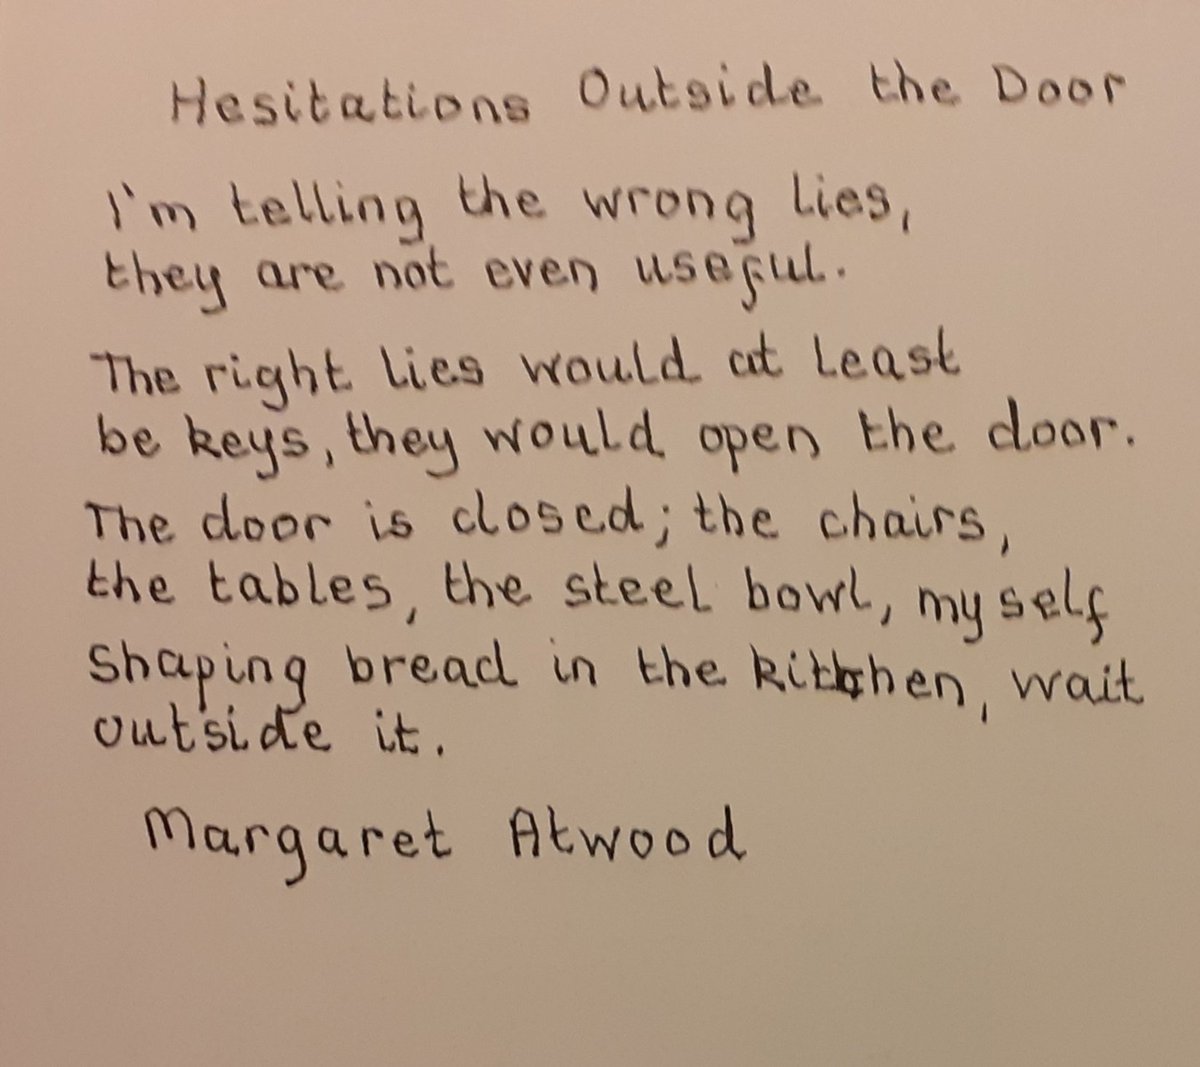 Hesitations Outside the Door
I'm telling the wrong lies,
they are not even useful.
The right lies would at least
be keys, they would open the door.
The door is closed; the chairs,
the tables, the steel bowl, myself
shaping bread in the kitchen, wait
outside it.
Margaret Atwood